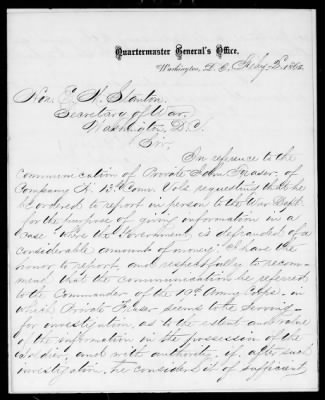 Quartermaster General's Office,
Washington, D. C., Feby 2, 1865.
Hon. E. M. Stanton,
Secretary of War,
Washington D.C.
Sir:
In reference to the
communication of Private John Fraser, of
Company K. 13th Conn. Vols requesting that he
be ordered to report in person to the War Dept.
for the purpose of giving information in a
case "where the Government is defrauded of a
considerable amount of money" I have the
honor to report, and respectfully to recom-
mend that the communication be referred
to the Commander of the 19th Army Corps - in
which Private Fraser seems to be serving -
for investigation, as to the extent and value
of the information in the possession of the
soldier, and with authority, if, after such
investigation, he considers it of sufficient